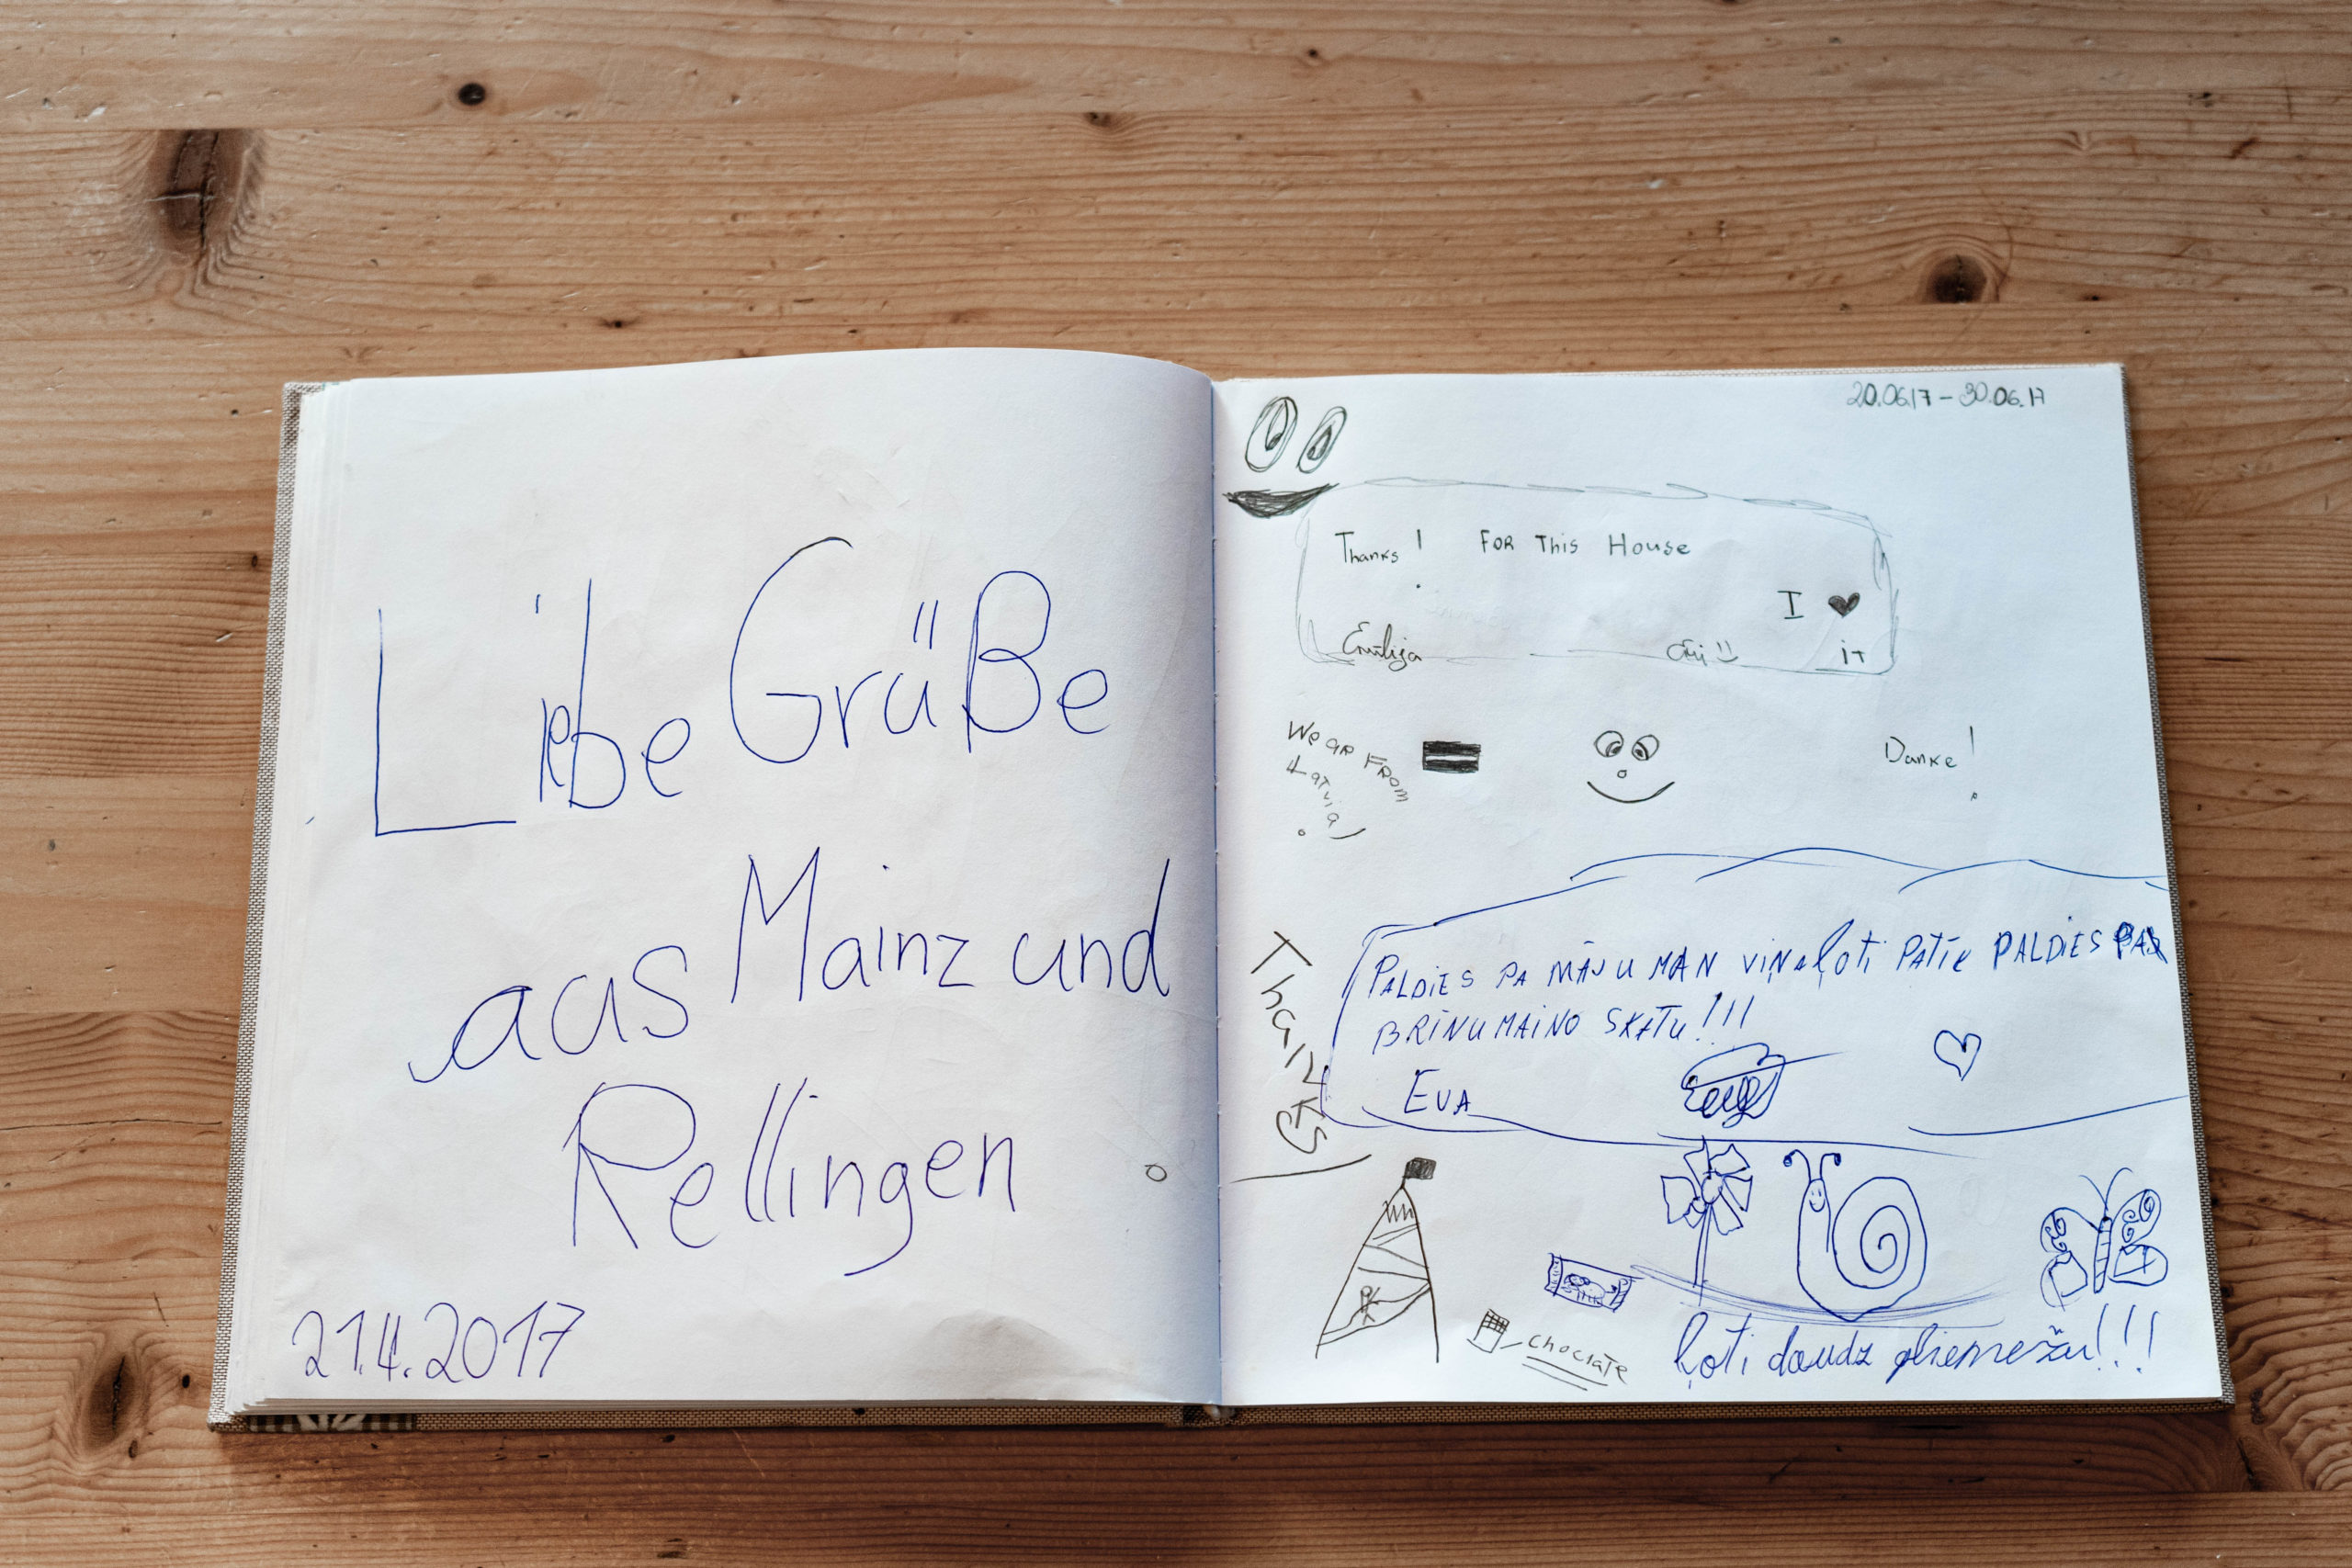 Liebe Grüße
aus Mainz und
Rellingen
21.4.2017
20.06.17 - 30.06.17
Thanks! For This House
I ♥
it
Emīlija
Emi
We ar From
Latvia!
Danke!
Thanks
PALDIES PA MĀJU MAN VIŅA ĻOTI PATĪK PALDIES PAR
BRĪNUMAINO SKATU!!!
EVA
choclate
ļoti daudz gliemežu!!!